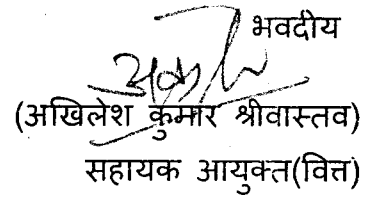 भवदीय
(अखिलेश कुमार श्रीवास्तव)
सहायक आयुक्त(वित्त)